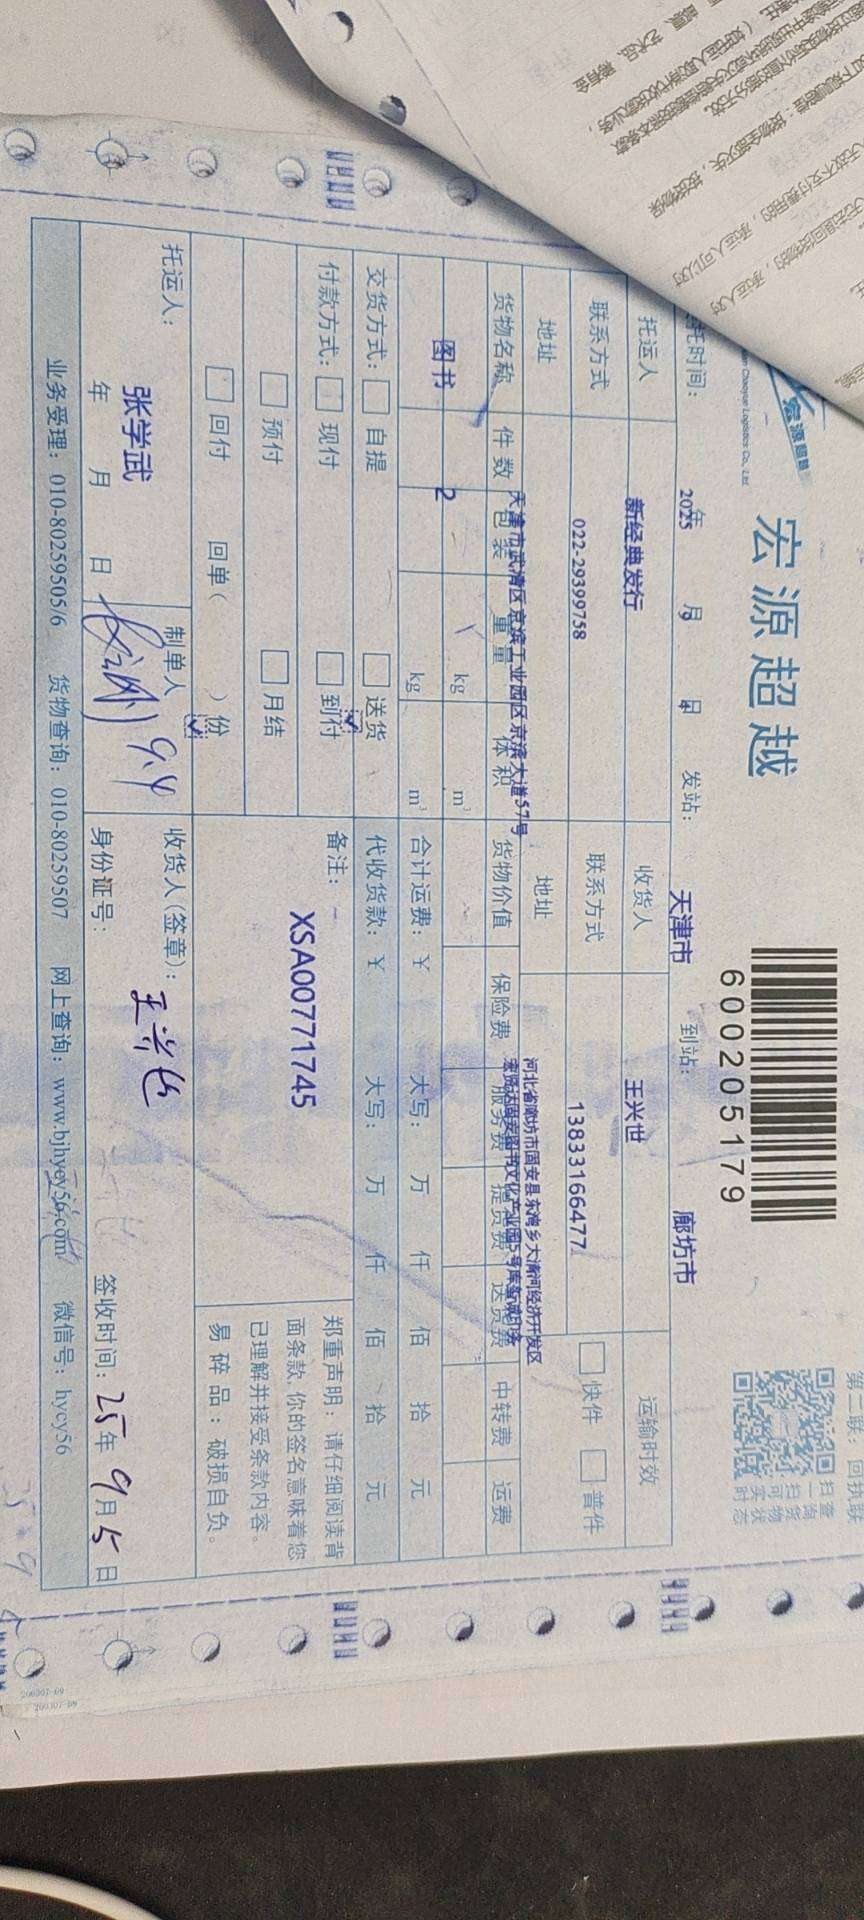 宏源超越
宏源超越
600205179
第二联：回执联
扫一扫可查询货物实时状态
托时间：2025年 9月 4日 发站：天津市 到站：廊坊市
托运人 新经典发行 收货人 王兴世 运输时效
联系方式 022-29399758 联系方式 13833166477 快件 普件
地址 天津市武清区京滨工业园区京滨大道57号 地址 河北省廊坊市固安县东湾乡大清河经济开发区
货物名称 件数 包装 重量 体积 货物价值 保险费 服务费 提货费 送货费 中转费 运费
图书 2 kg m³
kg m³ 合计运费：¥ 大写： 万 仟 佰 拾 元
交货方式： 自提 送货 代收货款：¥ 大写： 万 仟 佰 拾 元
付款方式： 现付 到付 备注：
预付 月结 XSA00771745
回付 回单（ ）份
郑重声明：请仔细阅读背
面条款，你的签名意味着您
已理解并接受条款内容。
易碎品：破损自负。
托运人： 张学武 制单人 9.4 收货人（签章）：王兴世
年 月 日 身份证号： 签收时间：25年9月5日
业务受理：010-80259505/6 货物查询：010-80259507 网上查询：www.bjhycy56.com 微信号：hycy56